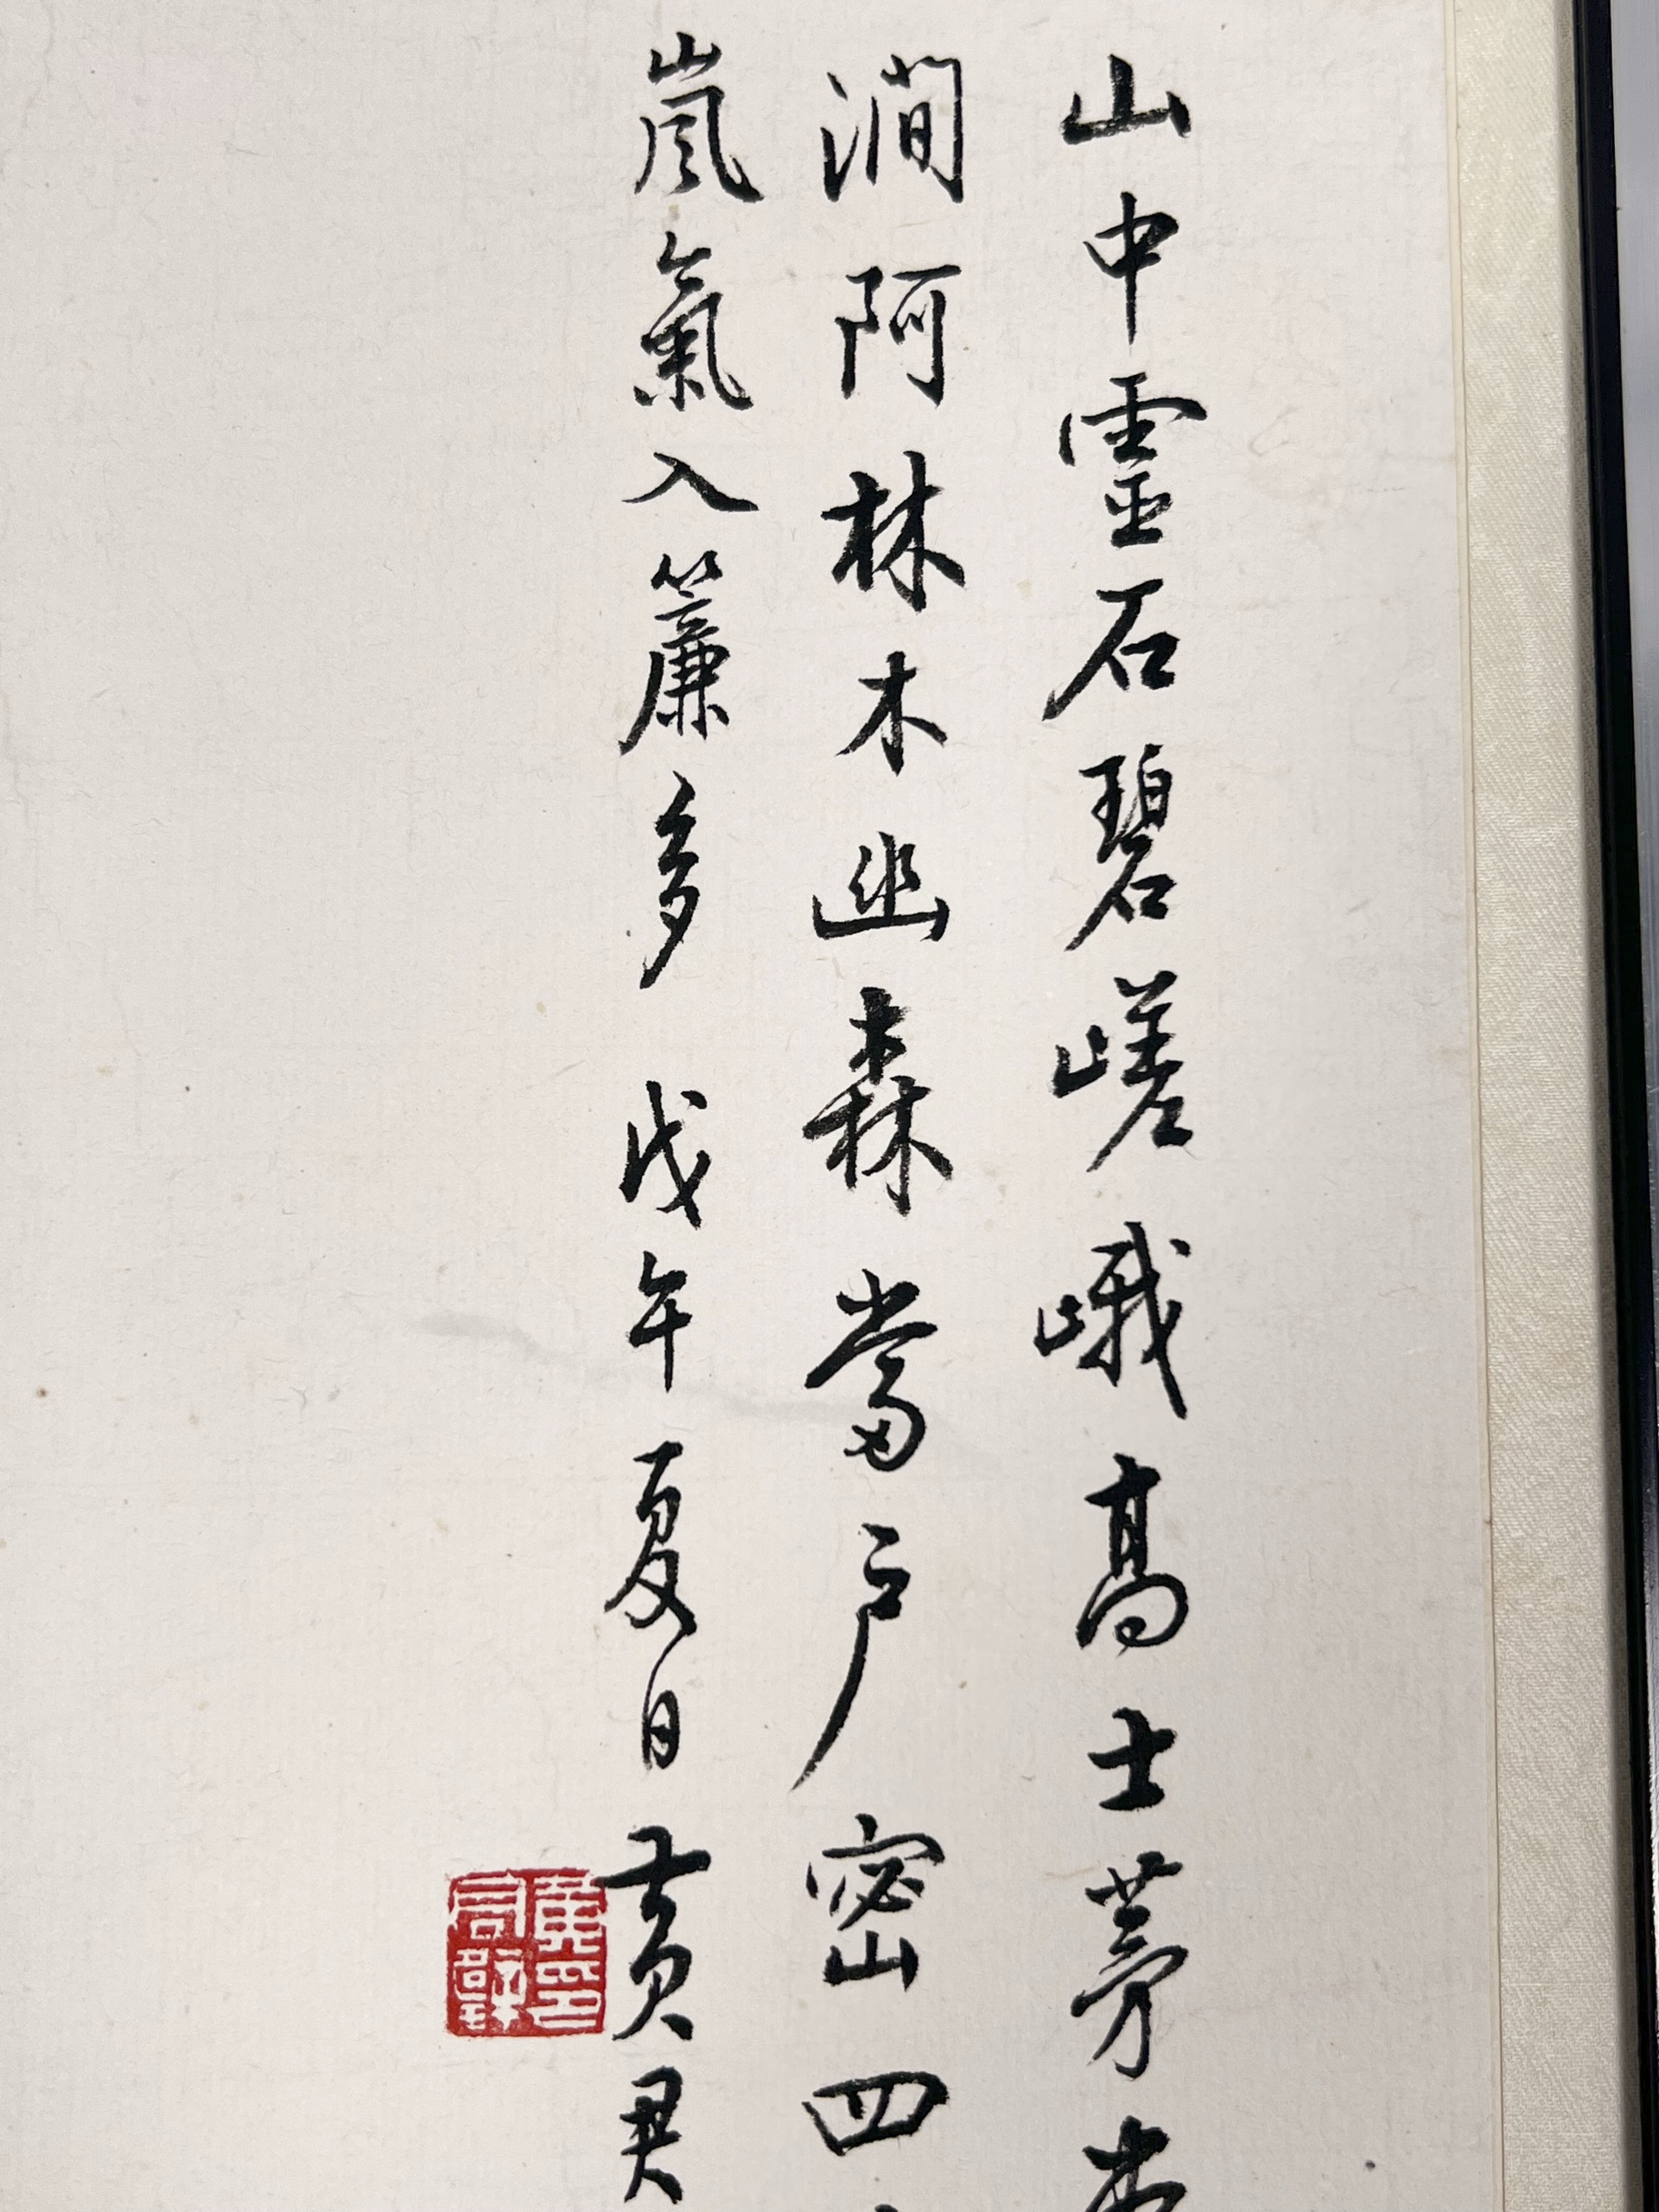 山中靈石碧嵯峨高士茅
澗阿林木幽森當户密四
嵐氣入簾多 戊午夏日黃君